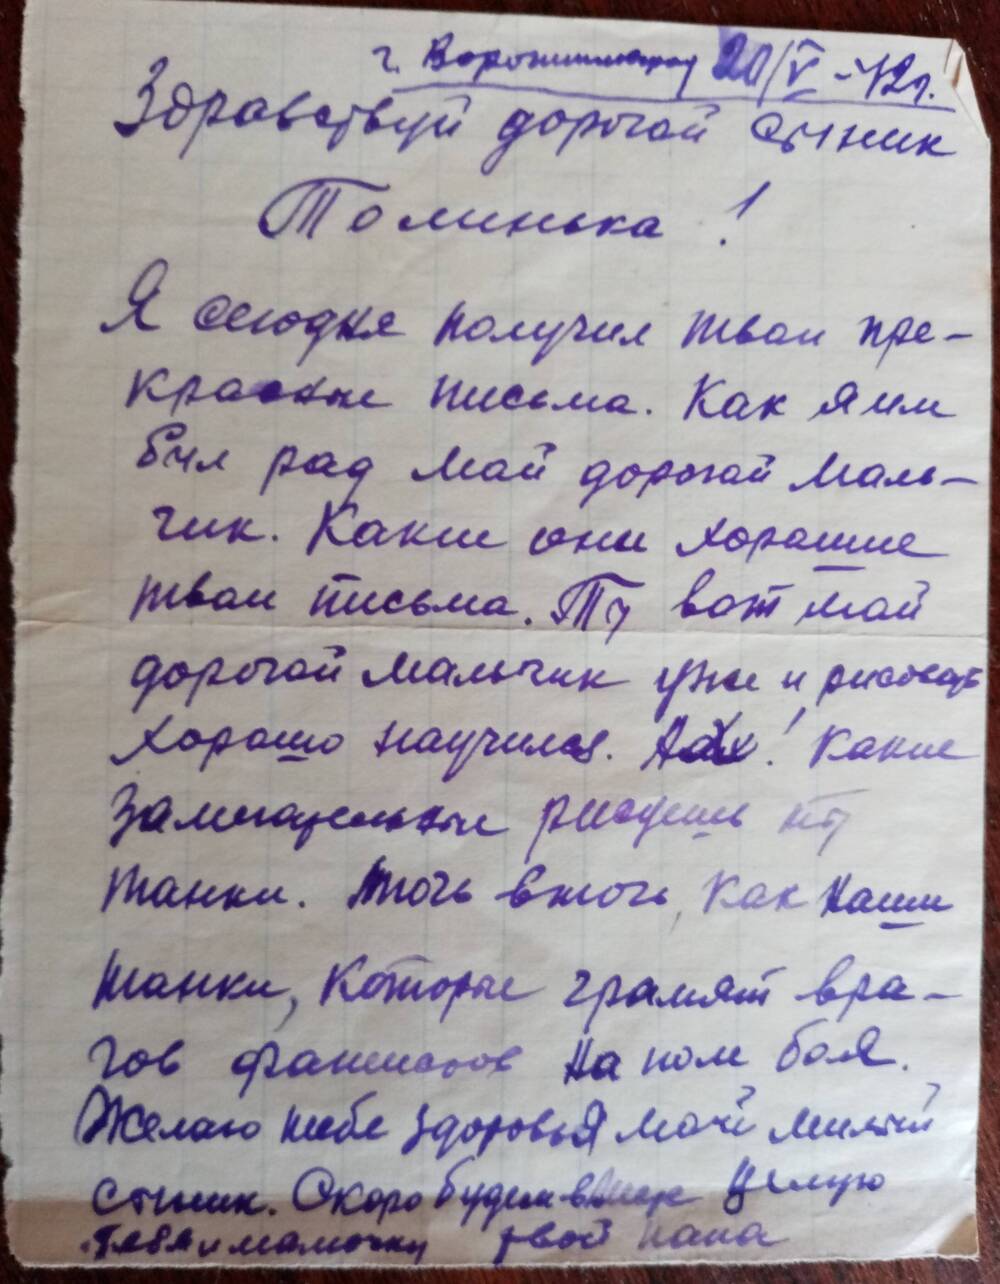 г. Ворошиловград 20/V-42г.
Здравствуй дорогой сыник
Толинька!
Я сегодня получил твои пре-
красные письма. Как я им
был рад мой дорогой маль-
чик. Какие они хорошие
твои письма. Ты вот мой
дорогой мальчик уже и рисовать
хорошо научился. Аах! Какие
замечательные рисуешь ты
танки. Точь вточь, как наши
танки, которые грамят вра-
гов фашистов на поле боя.
Желаю тебе здоровья мой милый
сыник. Скоро будем вместе Целую
тебя и мамочку твой папа